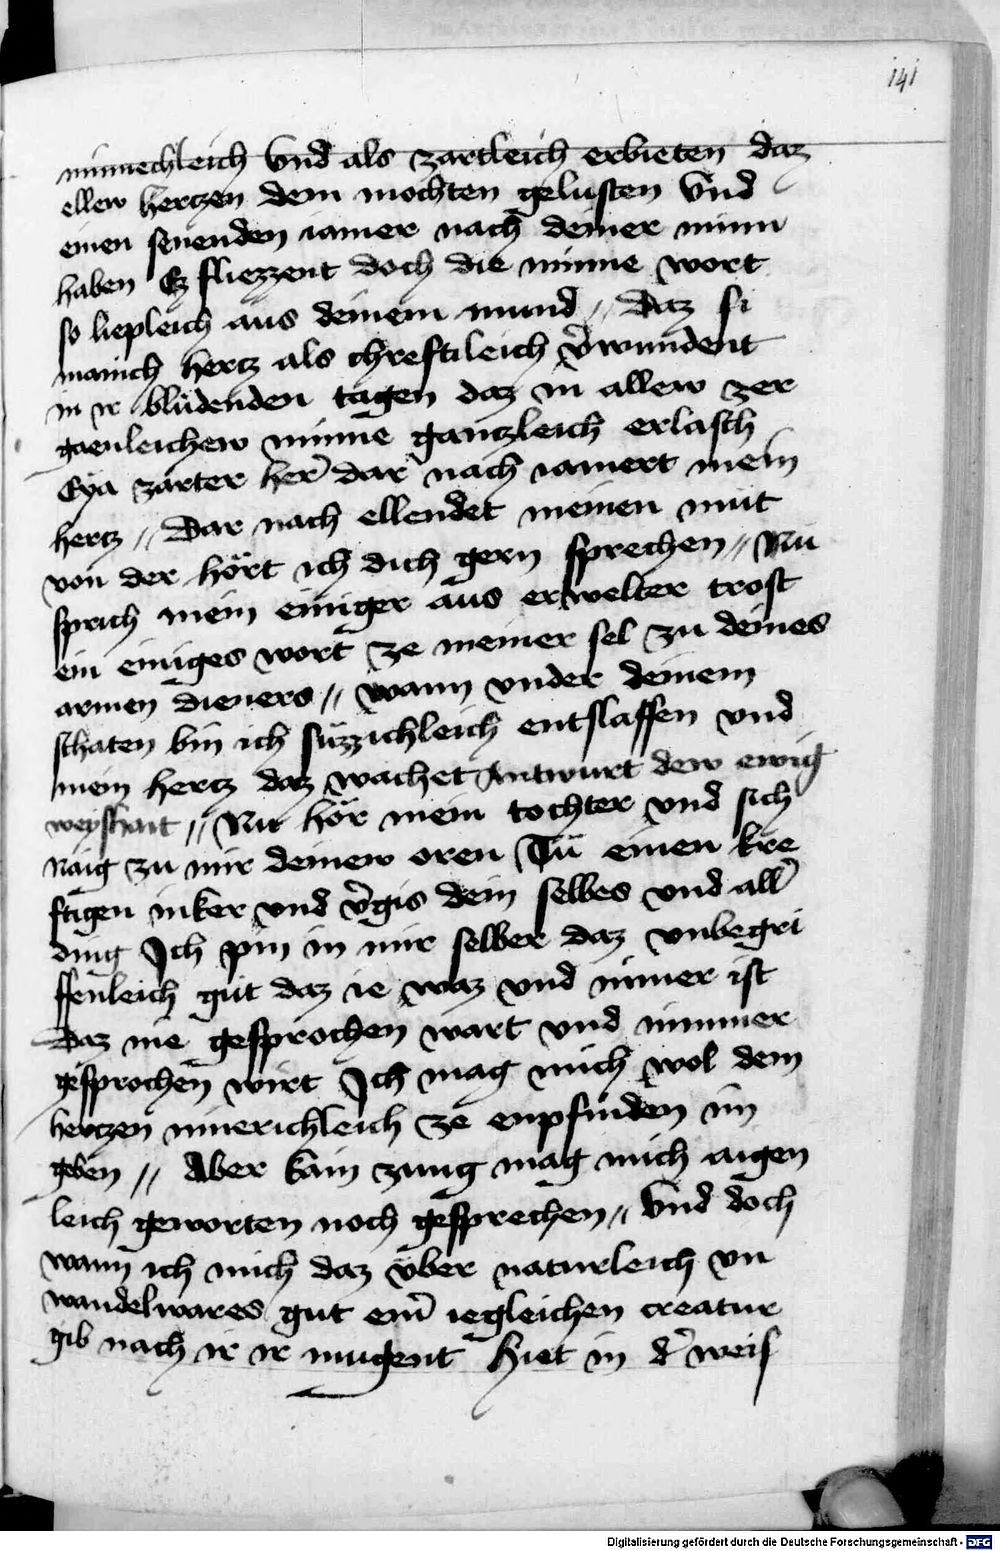 141
minnechleich Vnd als zartleich erbieten daz
ellew hertzen dem mochten gelusten Vnd
einen senenden iamer nach deiner minn
haben Ez fliezzent doch die minne wort
so liepleich aus deinem mund // Daz si
manich hertz als chreftileich v̾wundent
in ir blüdenden tagen daz in allew zer
gaenleichew minne gantzleich erlasch
Eya zarter her̾ dar nach iamert mein
hertz // Dar nach ellendet meinen müt
von der hört ich dich gern sprechen // Nü
sprich mein einiger aus erwelter trost
ein einiges wort ze meiner sel zu deines
armen dieners // Wann vnder deinem
schaten bin ich süzzichleich entslaffen vnd
mein hertz daz wachet Antwurt dew ewig
weyshait // Nu hör mein tochter vnd sich
Naig zu mir deinew oren Tü einen kre
ftigen inker vnd v̾gis dein selbes vnd all̾
ding Ich pin in mir selber daz vnbegri
ffenleich güt daz ie waz vnd imer ist
Daz nie gesprochen wart vnd nimmer
gesprochen wirt Ich mag mich wol dem
hertzen innerichleich ze enpfinden im
geben // Aber kain zung mag mich aigen
leich geworten noch gesprechen // Vnd doch
wann ich mich daz über naturleich vn
wandelwares gut eim̾ iegleichen creatur
gib nach ir ir mugent hiet in d̾ weis
Digitalisierung gefördert durch die Deutsche Forschungsgemeinschaft - DFG